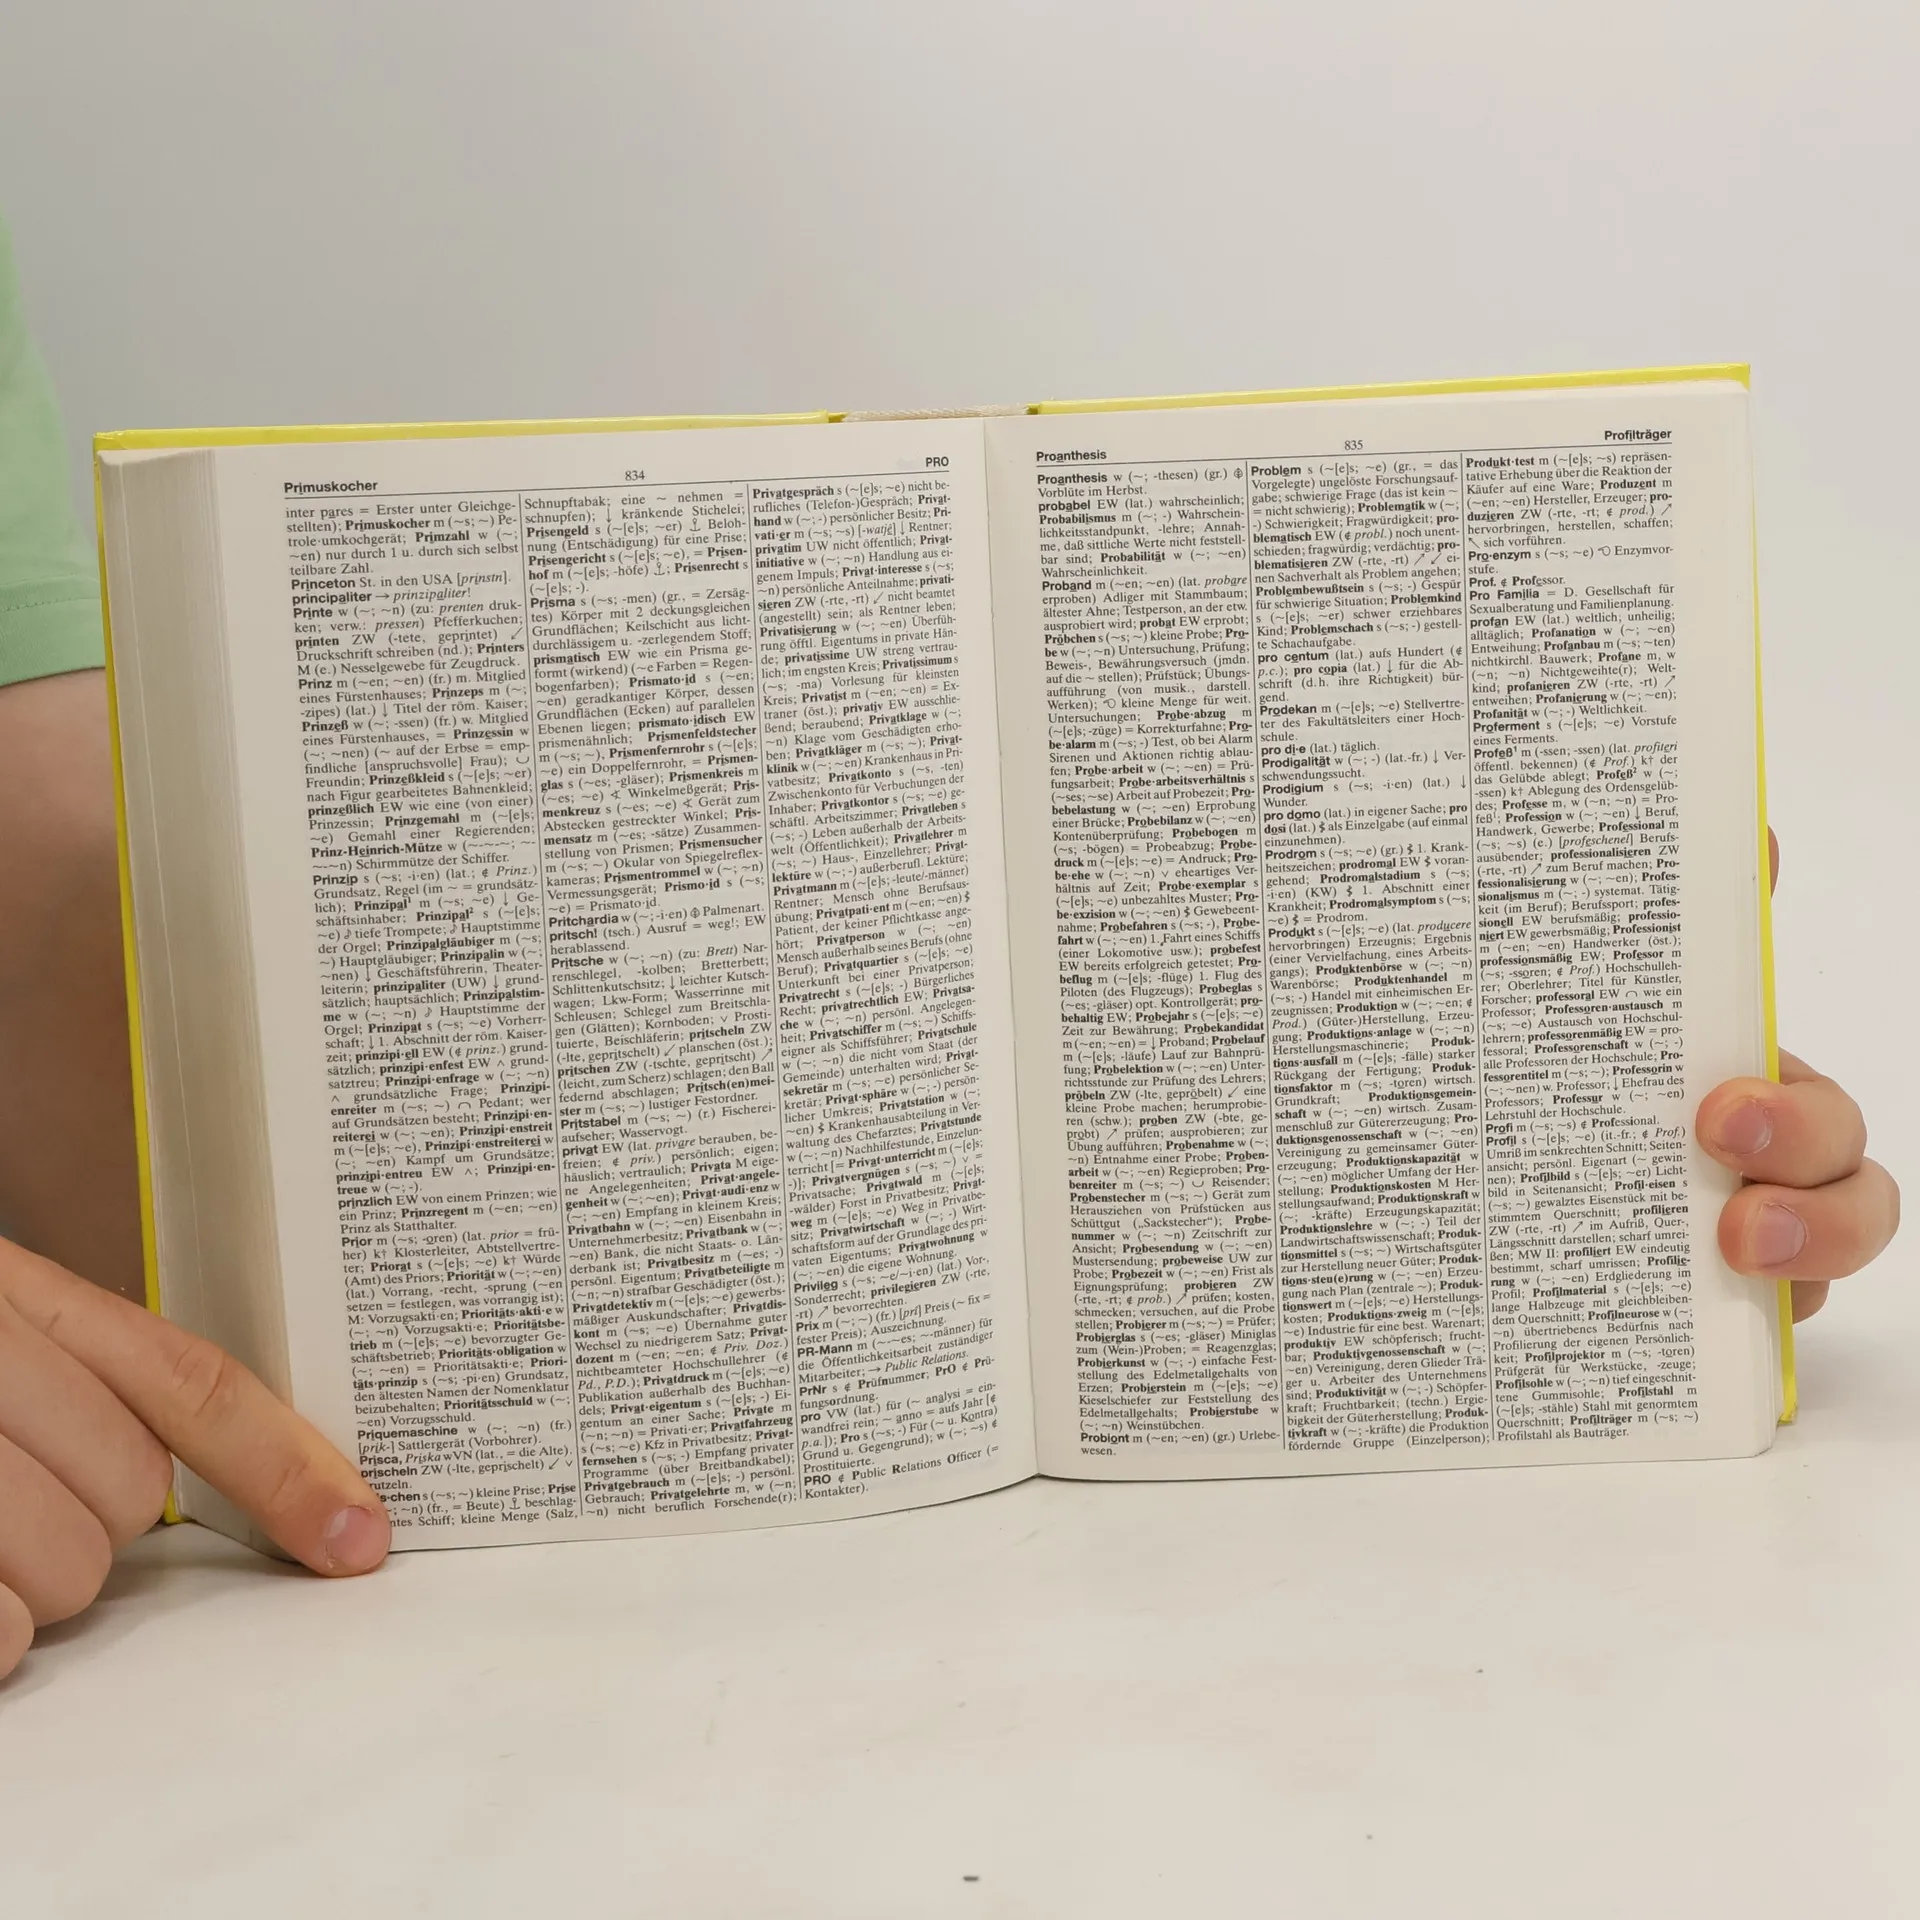 Primuskocher
834
PRO
inter pares = Erster unter Gleichge-
stellten); Primuskocher m (~s; ~) Pe-
trole·umkochgerät; Primzahl w (~;
~en) nur durch 1 u. durch sich selbst
teilbare Zahl.
Princeton St. in den USA [prinstn].
principaliter → prinzipaliter!
Printe w (~; ~n) (zu: prenten druk-
ken; verw.: pressen) Pfefferkuchen;
printen ZW (-tete, geprintet) ↙
Druckschrift schreiben (nd.); Printers
M (e.) Nesselgewebe für Zeugdruck.
Prinz m (~en; ~en) (fr.) m. Mitglied
eines Fürstenhauses; Prinzeps m (~;
-zipes) (lat.) ↓ Titel der röm. Kaiser;
Prinzeß w (~; -ssen) (fr.) w. Mitglied
eines Fürstenhauses, = Prinzessin w
(~; ~nen) (~ auf der Erbse = emp-
findliche [anspruchsvolle] Frau); ◡
Freundin; Prinzeßkleid s (~[e]s; ~er)
nach Figur gearbeitetes Bahnenkleid;
prinzeßlich EW wie eine (von einer)
Prinzessin; Prinzgemahl m (~[e]s;
~e) Gemahl einer Regierenden;
Prinz-Heinrich-Mütze w (~-~-~; ~-
~-~n) Schirmmütze der Schiffer.
Prinzip s (~s; -i·en) (lat.; ¢ Prinz.)
Grundsatz, Regel (im ~ = grundsätz-
lich); Prinzipal¹ m (~s; ~e) ↓ Ge-
schäftsinhaber; Prinzipal² s (~[e]s;
~e) ♪ tiefe Trompete; ♪ Hauptstimme
der Orgel; Prinzipalgläubiger m (~s;
~) Hauptgläubiger; Prinzipalin w (~;
~nen) ↓ Geschäftsführerin, Theater-
leiterin; prinzipaliter (UW) ↓ grund-
sätzlich; hauptsächlich; Prinzipalstim-
me w (~; ~n) ♪ Hauptstimme der
Orgel; Prinzipat s (~s; ~e) Vorherr-
schaft; ↓ 1. Abschnitt der röm. Kaiser-
zeit; prinzipi·ell EW (¢ prinz.) grund-
sätzlich; prinzipi·enfest EW ∧ grund-
satztreu; Prinzipi·enfrage w (~; ~n)
∧ grundsätzliche Frage; Prinzipi-
enreiter m (~s; ~) ◠ Pedant; wer
auf Grundsätzen besteht; Prinzipi·en-
reiterei w (~; ~en); Prinzipi·enstreit
m (~[e]s; ~e), Prinzipi·enstreiterei w
(~; ~en) Kampf um Grundsätze;
prinzipi·entreu EW ∧; Prinzipi·en-
treue w (~; -).
prinzlich EW von einem Prinzen; wie
ein Prinz; Prinzregent m (~en; ~en)
Prinz als Statthalter.
Prior m (~s; -oren) (lat. prior = frü-
her) k† Klosterleiter, Abtstellvertre-
ter; Priorat s (~[e]s; ~e) k† Würde
(Amt) des Priors; Priorität w (~; ~en)
(lat.) Vorrang, -recht, -sprung (~en
setzen = festlegen, was vorrangig ist);
M: Vorzugsakti·en; Prioritäts·akti·e w
(~; ~n) Vorzugsakti·e; Prioritätsbe-
trieb m (~[e]s; ~e) bevorzugter Ge-
schäftsbetrieb; Prioritäts·obligation w
(~; ~en) = Prioritätsakti·e; Priori-
täts·prinzip s (~s; -pi·en) Grundsatz,
den ältesten Namen der Nomenklatur
beizubehalten; Prioritätsschuld w (~;
~en) Vorzugsschuld.
Priquemaschine w (~; ~n) (fr.)
[prik-] Sattlergerät (Vorbohrer).
Prisca, Priska wVN (lat., = die Alte).
prischeln ZW (-lte, geprischelt) ↙ ∨
rutzeln.
s·chen s (~s; ~) kleine Prise; Prise
~; ~n) (fr., = Beute) ⚓ beschlag-
ntes Schiff; kleine Menge (Salz,
Schnupftabak; eine ~ nehmen =
schnupfen); ↓ kränkende Stichelei;
Prisengeld s (~[e]s; ~er) ⚓ Beloh-
nung (Entschädigung) für eine Prise;
Prisengericht s (~[e]s; ~e), = Prisen-
hof m (~[e]s; -höfe) ⚓; Prisenrecht s
(~[e]s; -).
Prisma s (~s; -men) (gr., = Zersäg-
tes) Körper mit 2 deckungsgleichen
Grundflächen; Keilschicht aus licht-
durchlässigem u. -zerlegendem Stoff;
prismatisch EW wie ein Prisma ge-
formt (wirkend) (~e Farben = Regen-
bogenfarben); Prismato·id s (~en;
~en) geradkantiger Körper, dessen
Grundflächen (Ecken) auf parallelen
Ebenen liegen; prismato·idisch EW
prismenähnlich; Prismenfeldstecher
m (~s; ~), Prismenfernrohr s (~[e]s;
~e) ein Doppelfernrohr, = Prismen-
glas s (~es; -gläser); Prismenkreis m
(~es; ~e) ∢ Winkelmeßgerät; Pris-
menkreuz s (~es; ~e) ∢ Gerät zum
Abstecken gestreckter Winkel; Pris-
mensatz m (~es; -sätze) Zusammen-
stellung von Prismen; Prismensucher
m (~s; ~) Okular von Spiegelreflex-
kameras; Prismentrommel w (~; ~n)
Vermessungsgerät; Prismo·id s (~s;
~e) = Prismato·id.
Pritchardia w (~; -i·en) Palmenart.
pritsch! (tsch.) Ausruf = weg!; EW
herablassend.
Pritsche w (~; ~n) (zu: Brett) Nar-
renschlegel, -kolben; Bretterbett;
Schlittenkutschsitz; ↓ leichter Kutsch-
wagen; Lkw-Form; Wasserrinne mit
Schleusen; Schlegel zum Breitschla-
gen (Glätten); Kornboden; ∨ Prosti-
tuierte, Beischläferin; pritscheln ZW
(-lte, gepritschelt) ↙ planschen (öst.);
pritschen ZW (-tschte, gepritscht) ↗
(leicht, zum Scherz) schlagen; den Ball
federnd abschlagen; Pritsch(en)mei-
ster m (~s; ~) lustiger Festordner.
Pritstabel m (~s; ~) (r.) Fischerei-
aufseher; Wasservogt.
privat EW (lat. privare berauben, be-
freien; ¢ priv.) persönlich; eigen;
häuslich; vertraulich; Privata M eige-
ne Angelegenheiten; Privat·angele-
genheit w (~; ~en); Privat·audi·enz w
(~; ~en) Empfang in kleinem Kreis;
Privatbahn w (~; ~en) Eisenbahn in
Unternehmerbesitz; Privatbank w (~;
~en) Bank, die nicht Staats- o. Län-
derbank ist; Privatbesitz m (~es; -)
persönl. Eigentum; Privatbeteiligte m
(~n; ~n) strafbar Geschädigter (öst.);
Privatdetektiv m (~[e]s; ~e) gewerbs-
mäßiger Auskundschafter; Privatdis-
kont m (~s; ~e) Übernahme guter
Wechsel zu niedrigerem Satz; Privat-
dozent m (~en; ~en; ¢ Priv. Doz.)
nichtbeamteter Hochschullehrer (¢
Pd., P.D.); Privatdruck m (~[e]s; ~e)
Publikation außerhalb des Buchhan-
dels; Privat·eigentum s (~[e]s; -) Ei-
gentum an einer Sache; Private m
(~n; ~n) = Privati·er; Privatfahrzeug
s (~s; ~e) Kfz in Privatbesitz; Privat-
fernsehen s (~s; -) Empfang privater
Programme (über Breitbandkabel);
Privatgebrauch m (~[e]s; -) persönl.
Gebrauch; Privatgelehrte m, w (~n;
~n) nicht beruflich Forschende(r);
Privatgespräch s (~[e]s; ~e) nicht be-
rufliches (Telefon-)Gespräch; Privat-
hand w (~; -) persönlicher Besitz; Pri-
vati·er m (~s; ~s) [-watjẹ] ↓ Rentner;
privatim UW nicht öffentlich; Privat-
initiative w (~; ~n) Handlung aus ei-
genem Impuls; Privat·interesse s (~s;
~n) persönliche Anteilnahme; privati-
sieren ZW (-rte, -rt) ↙ nicht beamtet
(angestellt) sein; als Rentner leben;
Privatisierung w (~; ~en) Überfüh-
rung öfftl. Eigentums in private Hän-
de; privatissime UW streng vertrau-
lich; im engsten Kreis; Privatissimum s
(~s; -ma) Vorlesung für kleinsten
Kreis; Privatist m (~en; ~en) = Ex-
traner (öst.); privativ EW ausschlie-
ßend; beraubend; Privatklage w (~;
~n) Klage vom Geschädigten erho-
ben; Privatkläger m (~s; ~); Privat-
klinik w (~; ~en) Krankenhaus in Pri-
vatbesitz; Privatkonto s (~s, -ten)
Zwischenkonto für Verbuchungen der
Inhaber; Privatkontor s (~s; ~e) ge-
schäftl. Arbeitszimmer; Privatleben s
(~s; -) Leben außerhalb der Arbeits-
welt (Öffentlichkeit); Privatlehrer m
(~s; ~) Haus-, Einzellehrer; Privat-
lektüre w (~; -) außerberufl. Lektüre;
Privatmann m (~[e]s; -leute/-männer)
Rentner; Mensch ohne Berufsaus-
übung; Privatpati·ent m (~en; ~en) $
Patient, der keiner Pflichtkasse ange-
hört; Privatperson w (~; ~en)
Mensch außerhalb seines Berufs (ohne
Beruf); Privatquartier s (~[e]s; ~e)
Unterkunft bei einer Privatperson;
Privatrecht s (~[e]s; -) Bürgerliches
Recht; privatrechtlich EW; Privatsa-
che w (~; ~n) persönl. Angelegen-
heit; Privatschiffer m (~s; ~) Schiffs-
eigner als Schiffsführer; Privatschule
w (~; ~n) die nicht vom Staat (der
Gemeinde) unterhalten wird; Privat-
sekretär m (~s; ~e) persönlicher Se-
kretär; Privat·sphäre w (~; -) persön-
licher Umkreis; Privatstation w (~;
~en) $ Krankenhausabteilung in Ver-
waltung des Chefarztes; Privatstunde
w (~; ~n) Nachhilfestunde, Einzelun-
terricht [= Privat·unterricht m (~[e]s;
-)]; Privatvergnügen s (~s; ~) ∨ =
Privatsache; Privatwald m (~[e]s;
-wälder) Forst in Privatbesitz; Privat-
weg m (~[e]s; ~e) Weg in Privatbe-
sitz; Privatwirtschaft w (~; -) Wirt-
schaftsform auf der Grundlage des pri-
vaten Eigentums; Privatwohnung w
(~; ~en) die eigene Wohnung.
Privileg s (~s; ~e/~i·en) (lat.) Vor-,
Sonderrecht; privilegieren ZW (-rte,
-rt) ↗ bevorrechten.
Prix m (~; ~) (fr.) [pri] Preis (~ fix =
fester Preis); Auszeichnung.
PR-Mann m (~-~es; ~-männer) für
die Öffentlichkeitsarbeit zuständiger
Mitarbeiter; → Public Relations.
PrNr s ¢ Prüfnummer; PrO ¢ Prü-
fungsordnung.
pro VW (lat.) für (~ analysi = ein-
wandfrei rein; ~ anno = aufs Jahr [¢
p.a.]); Pro s (~s; -) Für (~ u. Kontra)
Grund u. Gegengrund); w (~; ~s) ¢
Prostituierte.
PRO ¢ Public Relations Officer (=
Kontakter).
Proanthesis
835
Profilträger
Proanthesis w (~; -thesen) (gr.)
Vorblüte im Herbst.
probabel EW (lat.) wahrscheinlich;
Probabilismus m (~; -) Wahrschein-
lichkeitsstandpunkt, -lehre; Annah-
me, daß sittliche Werte nicht feststell-
bar sind; Probabilität w (~; ~en)
Wahrscheinlichkeit.
Proband m (~en; ~en) (lat. probare
erproben) Adliger mit Stammbaum;
ältester Ahne; Testperson, an der etw.
ausprobiert wird; probat EW erprobt;
Pröbchen s (~s; ~) kleine Probe; Pro-
be w (~; ~n) Untersuchung, Prüfung;
Beweis-, Bewährungsversuch (jmdn.
auf die ~ stellen); Prüfstück; Übungs-
aufführung (von musik., darstell.
Werken); kleine Menge für weit.
Untersuchungen; Probe·abzug m
(~[e]s; -züge) = Korrekturfahne; Pro-
be·alarm m (~s; -) Test, ob bei Alarm
Sirenen und Aktionen richtig ablau-
fen; Probe·arbeit w (~; ~en) = Prü-
fungsarbeit; Probe·arbeitsverhältnis s
(~ses; ~se) Arbeit auf Probezeit; Pro-
bebelastung w (~; ~en) Erprobung
einer Brücke; Probebilanz w (~; ~en)
Kontenüberprüfung; Probebogen m
(~s; -bögen) = Probeabzug; Probe-
druck m (~[e]s; ~e) = Andruck; Pro-
be·ehe w (~; ~n) ∨ eheartiges Ver-
hältnis auf Zeit; Probe·exemplar s
(~[e]s; ~e) unbezahltes Muster; Pro-
be·exzision w (~; ~en) $ Gewebeent-
nahme; Probefahren s (~s; -), Probe-
fahrt w (~; ~en) 1. Fahrt eines Schiffs
(einer Lokomotive usw.); probefest
EW bereits erfolgreich getestet; Pro-
beflug m (~[e]s; -flüge) 1. Flug des
Piloten (des Flugzeugs); Probeglas s
(~es; -gläser) opt. Kontrollgerät; pro-
behaltig EW; Probejahr s (~[e]s; ~e)
Zeit zur Bewährung; Probekandidat
m (~en; ~en) = ↓ Proband; Probelauf
m (~[e]s; -läufe) Lauf zur Bahnprü-
fung; Probelektion w (~; ~en) Unter-
richtsstunde zur Prüfung des Lehrers;
pröbeln ZW (-lte, gepröbelt) ↙ eine
kleine Probe machen; herumprobie-
ren (schw.); proben ZW (-bte, ge-
probt) ↗ prüfen; ausprobieren; zur
Übung aufführen; Probenahme w (~;
~n) Entnahme einer Probe; Proben-
arbeit w (~; ~en) Regieproben; Pro-
benreiter m (~s; ~) ◡ Reisender;
Probenstecher m (~s; ~) Gerät zum
Herausziehen von Prüfstücken aus
Schüttgut („Sackstecher“); Probe-
nummer w (~; ~n) Zeitschrift zur
Ansicht; Probesendung w (~; ~en)
Mustersendung; probeweise UW zur
Probe; Probezeit w (~; ~en) Frist als
Eignungsprüfung; probieren ZW
(-rte, -rt; ¢ prob.) ↗ prüfen; kosten,
schmecken; versuchen, auf die Probe
stellen; Probierer m (~s; ~) = Prüfer;
Probierglas s (~es; -gläser) Miniglas
zum (Wein-)Proben; = Reagenzglas;
Probierkunst w (~; -) einfache Fest-
stellung des Edelmetallgehalts von
Erzen; Probierstein m (~[e]s; ~e)
Kieselschiefer zur Feststellung des
Edelmetallgehalts; Probierstube w
(~; ~n) Weinstübchen.
Probiont m (~en; ~en) (gr.) Urlebe-
wesen.
Problem s (~[e]s; ~e) (gr., = das
Vorgelegte) ungelöste Forschungsauf-
gabe; schwierige Frage (das ist kein ~
= nicht schwierig); Problematik w (~;
-) Schwierigkeit; Fragwürdigkeit; pro-
blematisch EW (¢ probl.) noch unent-
schieden; fragwürdig; verdächtig; pro-
blematisieren ZW (-rte, -rt) ↗ ↙ ei-
nen Sachverhalt als Problem angehen;
Problembewußtsein s (~s; -) Gespür
für schwierige Situation; Problemkind
s (~[e]s; ~er) schwer erziehbares
Kind; Problemschach s (~s; -) gestell-
te Schachaufgabe.
pro centum (lat.) aufs Hundert (¢
p.c.); pro copia (lat.) ↓ für die Ab-
schrift (d.h. ihre Richtigkeit) bür-
gend.
Prodekan m (~[e]s; ~e) Stellvertre-
ter des Fakultätsleiters einer Hoch-
schule.
pro di·e (lat.) täglich.
Prodigalität w (~; -) (lat.-fr.) ↓ Ver-
schwendungssucht.
Prodigium s (~s; -i·en) (lat.) ↓
Wunder.
pro domo (lat.) in eigener Sache; pro
dosi (lat.) $ als Einzelgabe (auf einmal
einzunehmen).
Prodrom s (~s; ~e) (gr.) $ 1. Krank-
heitszeichen; prodromal EW $ voran-
gehend; Prodromalstadium s (~s;
-i·en) (KW) $ 1. Abschnitt einer
Krankheit; Prodromalsymptom s (~s;
~e) $ = Prodrom.
Produkt s (~[e]s; ~e) (lat. producere
hervorbringen) Erzeugnis; Ergebnis
(einer Vervielfachung, eines Arbeits-
gangs); Produktenbörse w (~; ~n)
Warenbörse; Produktenhandel m
(~s; -) Handel mit einheimischen Er-
zeugnissen; Produktion w (~; ~en; ¢
Prod.) (Güter-)Herstellung, Erzeu-
gung; Produktions·anlage w (~; ~n)
Herstellungsmaschinerie; Produk-
tions·ausfall m (~[e]s; -fälle) starker
Rückgang der Fertigung; Produk-
tionsfaktor m (~s; -toren) wirtsch.
Grundkraft; Produktionsgemein-
schaft w (~; ~en) wirtsch. Zusam-
menschluß zur Gütererzeugung; Pro-
duktionsgenossenschaft w (~; ~en)
Vereinigung zu gemeinsamer Güter-
erzeugung; Produktionskapazität w
(~; ~en) möglicher Umfang der Her-
stellung; Produktionskosten M Her-
stellungsaufwand; Produktionskraft w
(~; -kräfte) Erzeugungskapazität;
Produktionslehre w (~; -) Teil der
Landwirtschaftswissenschaft; Produk-
tionsmittel s (~s; ~) Wirtschaftsgüter
zur Herstellung neuer Güter; Produk-
tions·steu(e)rung w (~; ~en) Erzeu-
gung nach Plan (zentrale ~); Produk-
tionswert m (~[e]s; ~e) Herstellungs-
kosten; Produktions·zweig m (~[e]s;
~e) Industrie für eine best. Warenart;
produktiv EW schöpferisch; frucht-
bar; Produktivgenossenschaft w (~;
~en) Vereinigung, deren Glieder Trä-
ger u. Arbeiter des Unternehmens
sind; Produktivität w (~; -) Schöpfer-
kraft; Fruchtbarkeit; (techn.) Ergie-
bigkeit der Güterherstellung; Produk-
tivkraft w (~; -kräfte) die Produktion
fördernde Gruppe (Einzelperson);
Produkt·test m (~[e]s; ~s) repräsen-
tative Erhebung über die Reaktion der
Käufer auf eine Ware; Produzent m
(~en; ~en) Hersteller, Erzeuger; pro-
duzieren ZW (-rte, -rt; ¢ prod.) ↗
hervorbringen, herstellen, schaffen;
↖ sich vorführen.
Pro·enzym s (~s; ~e) Enzymvor-
stufe.
Prof. ¢ Professor.
Pro Familia = D. Gesellschaft für
Sexualberatung und Familienplanung.
profan EW (lat.) weltlich, unheilig;
alltäglich; Profanation w (~; ~en)
Entweihung; Profanbau m (~s; ~ten)
nichtkirchl. Bauwerk; Profane m, w
(~n; ~n) Nichtgeweihte(r); Welt-
kind; profanieren ZW (-rte, -rt) ↗
entweihen; Profanierung w (~; ~en);
Profanität w (~; -) Weltlichkeit.
Proferment s (~[e]s; ~e) Vorstufe
eines Ferments.
Profeß¹ m (-ssen; -ssen) (lat. profiteri
öffentl. bekennen) (¢ Prof.) k† der
das Gelübde ablegt; Profeß² w (~;
-ssen) k† Ablegung des Ordensgelüb-
des; Professe m, w (~n; ~n) = Pro-
feß¹; Profession w (~; ~en) ↓ Beruf,
Handwerk, Gewerbe; Professional m
(~s; ~s) (e.) [profeschenel] Berufs-
ausübender; professionalisieren ZW
(-rte, -rt) ↗ zum Beruf machen; Pro-
fessionalisierung w (~; ~en); Profes-
sionalismus m (~; -) systemat. Tätig-
keit (im Beruf); Berufssport; profes-
sionell EW berufsmäßig; professio-
niert EW gewerbsmäßig; Professionist
m (~en; ~en) Handwerker (öst.);
professionsmäßig EW; Professor m
(~s; -ssoren; ¢ Prof.) Hochschulleh-
rer; Oberlehrer; Titel für Künstler,
Forscher; professoral EW ◠ wie ein
Professor; Professoren·austausch m
(~s; ~e) Austausch von Hochschul-
lehrern; professorenmäßig EW = pro-
fessoral; Professorenschaft w (~; -)
alle Professoren der Hochschule; Pro-
fessorentitel m (~s; ~); Professorin w
(~; ~nen) w. Professor; ↓ Ehefrau des
Professors; Professur w (~; ~en)
Lehrstuhl der Hochschule.
Profi m (~s; ~s) ¢ Professional.
Profil s (~[e]s; ~e) (it.-fr.; ¢ Prof.)
Umriß im senkrechten Schnitt; Seiten-
ansicht; persönl. Eigenart (~ gewin-
nen); Profilbild s (~[e]s; ~er) Licht-
bild in Seitenansicht; Profil·eisen s
(~s; ~) gewalztes Eisenstück mit be-
stimmtem Querschnitt; profilieren
ZW (-rte, -rt) ↗ im Aufriß, Quer-,
Längsschnitt darstellen; scharf umrei-
ßen; MW II: profiliert EW eindeutig
bestimmt, scharf umrissen; Profilie-
rung w (~; ~en) Erdgliederung im
Profil; Profilmaterial s (~s; ~e)
lange Halbzeuge mit gleichbleiben-
dem Querschnitt; Profilneurose w (~;
~n) übertriebenes Bedürfnis nach
Profilierung der eigenen Persönlich-
keit; Profilprojektor m (~s; -toren)
Prüfgerät für Werkstücke, -zeuge;
Profilsohle w (~; ~n) tief eingeschnit-
tene Gummisohle; Profilstahl m
(~[e]s; -stähle) Stahl mit genormtem
Querschnitt; Profilträger m (~s; ~)
Profilstahl als Bauträger.